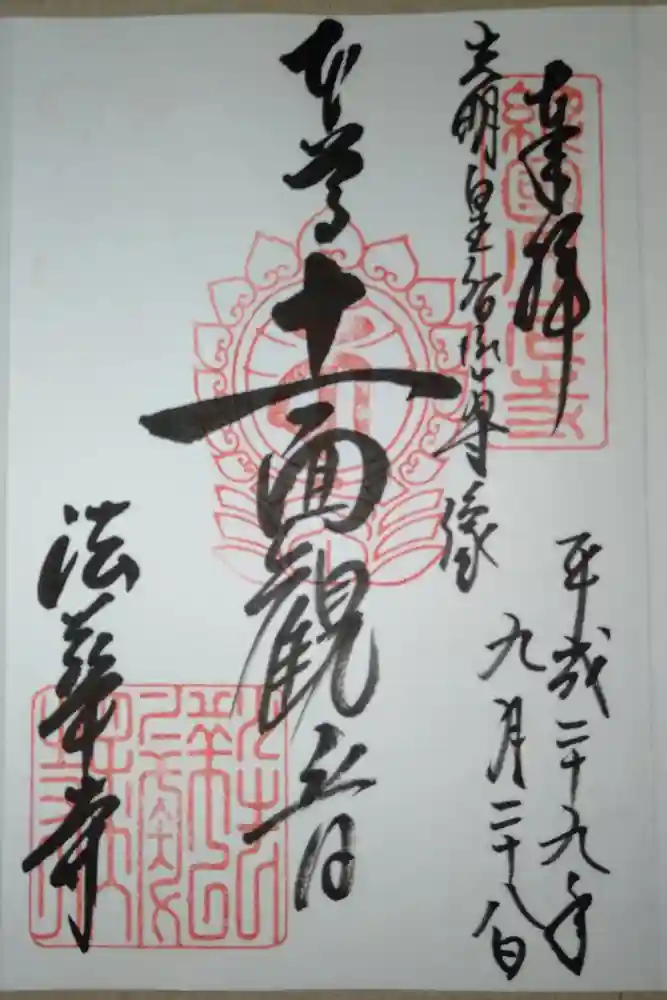 奉拝
平成二十九年
九月二十八日
光明皇后御像
本尊十一面觀音
法華寺